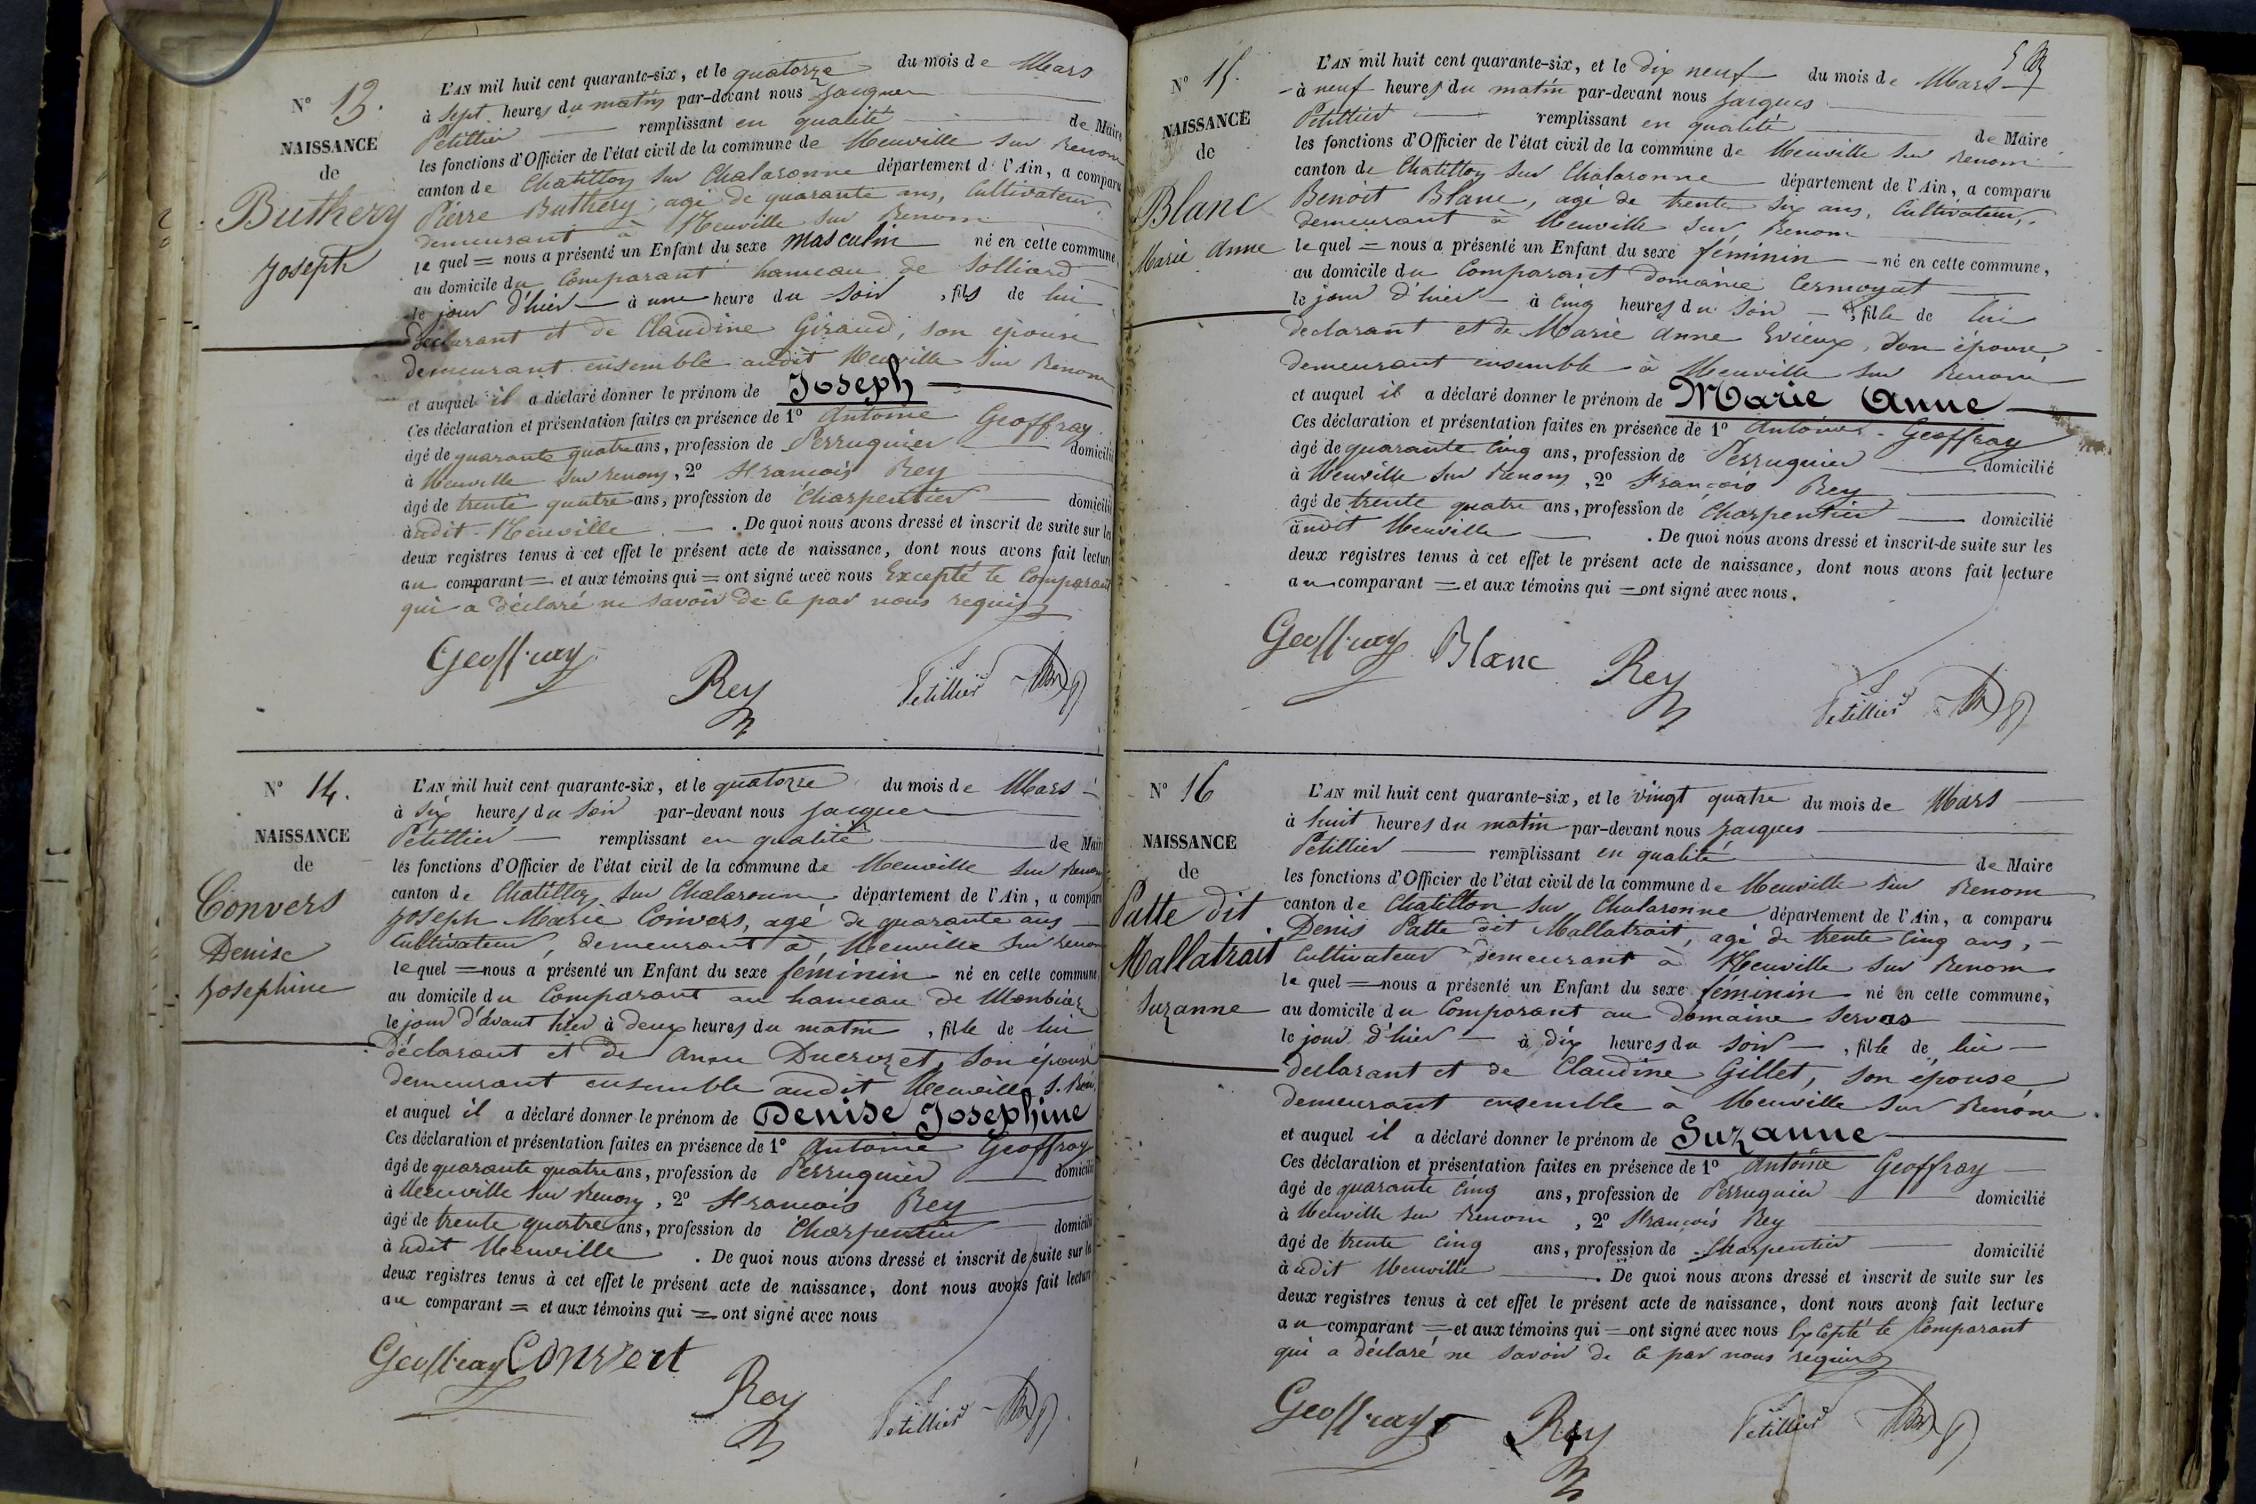 N° 13.
NAISSANCE
de
Buthery
Joseph
L'AN mil huit cent quarante-six, et le quatorze du mois de Mars
à sept heures du matin par-devant nous Jacques
Petillier remplissant en qualité de Maire
les fonctions d'Officier de l'état civil de la commune de Neuville sur Renom
canton de Chatillon sur Chalaronne département de l'Ain, a comparu
Pierre Buthery, agé de quarante ans, Cultivateur,
demeurant à Neuville sur Renom
le quel = nous a présenté un Enfant du sexe masculin né en cette commune,
au domicile du Comparant hameau de Solliard
le jour d'hier à une heure du soir, fils de lui
déclarant et de Claudine Giraud, son épouse
demeurant ensemble audit Neuville sur Renom
et auquel il a déclaré donner le prénom de Joseph
Ces déclaration et présentation faites en présence de 1° Antoine Geoffray
âgé de quarante quatre ans, profession de Perruquier domicilié
à Neuville sur renom, 2° François Rey
âgé de trente quatre ans, profession de Charpentier domicilié
à udit Neuville. De quoi nous avons dressé et inscrit de suite sur les
deux registres tenus à cet effet le présent acte de naissance, dont nous avons fait lecture
au comparant = et aux témoins qui = ont signé avec nous Excepté le Comparant
qui a déclaré ne savoir de ce par nous requis
Geoffray
Rey
Petillier
N° 14.
NAISSANCE
de
Convers
Denise
Josephine
L'AN mil huit cent quarante-six, et le quatorze du mois de Mars
à six heures du soir par-devant nous Jacques
Petillier remplissant en qualité de Maire
les fonctions d'Officier de l'état civil de la commune de Neuville sur Renom
canton de Chatillon sur Chalaronne département de l'Ain, a comparu
Joseph Marie Convers, agé de quarante ans
Cultivateur, demeurant à Neuville sur renom
le quel = nous a présenté un Enfant du sexe féminin né en cette commune,
au domicile du Comparant au hameau de Monbiaz
le jour d'avant hier à deux heures du matin, fille de lui
déclarant et de Anne Ducrozet, son épouse
demeurant ensemble audit Neuville s. Ren.
et auquel il a déclaré donner le prénom de Denise Josephine
Ces déclaration et présentation faites en présence de 1° Antoine Geoffray
âgé de quarante quatre ans, profession de Perruquier domicilié
à Neuville sur Renom, 2° François Rey
âgé de trente quatre ans, profession de Charpentier domicilié
à udit Neuville. De quoi nous avons dressé et inscrit de suite sur les
deux registres tenus à cet effet le présent acte de naissance, dont nous avons fait lecture
au comparant = et aux témoins qui = ont signé avec nous
Geoffray Convert
Rey
Petillier
N° 15.
NAISSANCE
de
Blanc
Marie Anne
L'AN mil huit cent quarante-six, et le dix neuf du mois de Mars
à neuf heures du matin par-devant nous Jacques
Petillier remplissant en qualité de Maire
les fonctions d'Officier de l'état civil de la commune de Neuville sur Renom
canton de Chatillon sur Chalaronne département de l'Ain, a comparu
Benoit Blanc, agé de trente six ans, Cultivateur,
demeurant à Neuville sur Renom
le quel = nous a présenté un Enfant du sexe féminin né en cette commune,
au domicile du Comparant domaine Cermoyat
le jour d'hier à cinq heures du soir, fille de lui
declarant et de Marie Anne Evieux, son épouse,
demeurant ensemble à Neuville sur Renom
et auquel il a déclaré donner le prénom de Marie Anne
Ces déclaration et présentation faites en présence de 1° Antoine Geoffray
âgé de quarante cinq ans, profession de Perruquier domicilié
à Neuville sur Renom, 2° François Rey
âgé de trente quatre ans, profession de Charpentier domicilié
à udit Neuville. De quoi nous avons dressé et inscrit de suite sur les
deux registres tenus à cet effet le présent acte de naissance, dont nous avons fait lecture
au comparant = et aux témoins qui = ont signé avec nous.
Geoffray Blanc Rey
Petillier
N° 16
NAISSANCE
de
Patte dit
Mallatrait
Suzanne
L'AN mil huit cent quarante-six, et le vingt quatre du mois de Mars
à huit heures du matin par-devant nous Jacques
Petillier remplissant en qualité de Maire
les fonctions d'Officier de l'état civil de la commune de Neuville sur Renom
canton de Chatillon sur Chalaronne département de l'Ain, a comparu
Denis Patte dit Mallatrait, agé de trente cinq ans,
Cultivateur demeurant à Neuville sur Renom
le quel = nous a présenté un Enfant du sexe féminin né en cette commune,
au domicile du Comparant au domaine Servas
le jour d'hier à dix heures du soir, fille de lui
declarant et de Claudine Gillet, son épouse
demeurant ensemble à Neuville sur Renom
et auquel il a déclaré donner le prénom de Suzanne
Ces déclaration et présentation faites en présence de 1° Antoine Geoffray
âgé de quarante cinq ans, profession de Perruquier domicilié
à Neuville sur Renom, 2° François Rey
âgé de trente cinq ans, profession de Charpentier domicilié
à udit Neuville. De quoi nous avons dressé et inscrit de suite sur les
deux registres tenus à cet effet le présent acte de naissance, dont nous avons fait lecture
au comparant = et aux témoins qui = ont signé avec nous Excepté le Comparant
qui a déclaré ne savoir de ce par nous requis
Geoffray Rey
Petillier